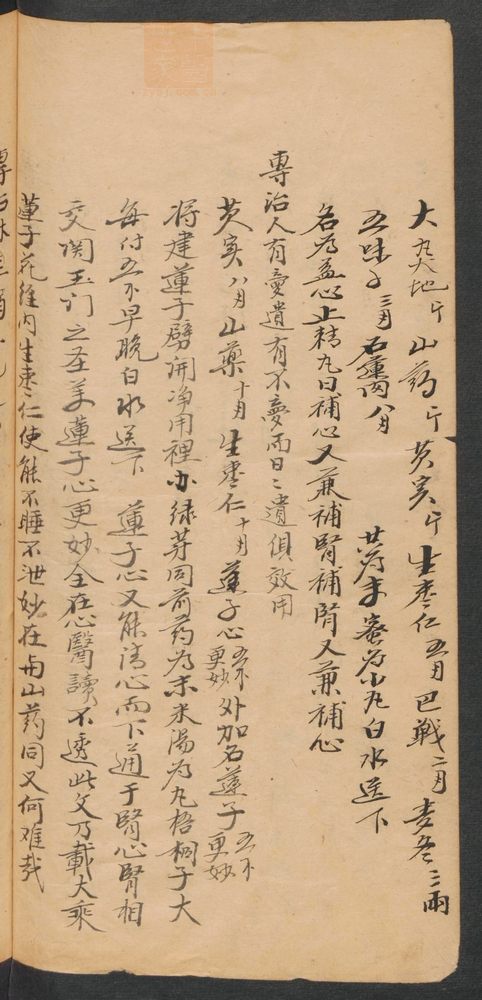 大熟地斤 山药斤 芡实斤 生枣仁五月 巴戟二月 麦冬三兩
五味子三月 石蓮肉八月 共为末蜜为小丸白水送下
名为益心止精丸曰補心又兼補腎補腎又兼補心
專治人有夢遺有不夢而日〻遺俱效用
芡实八月 山藥十月 生枣仁十月 蓮子心五不更妙 外加名蓮子五不更妙
将建蓮子劈開净用裡小绿芽同前药为末米湯为丸梧桐子大
每付五不早晚白水送下 蓮子心又能清心而下通于腎心腎相
交闗玉门之至美蓮子心更妙全在心醫讀不透此文乃載大乘
蓮子花維内生枣仁使能不睡不泄妙在与山药同又何难哉